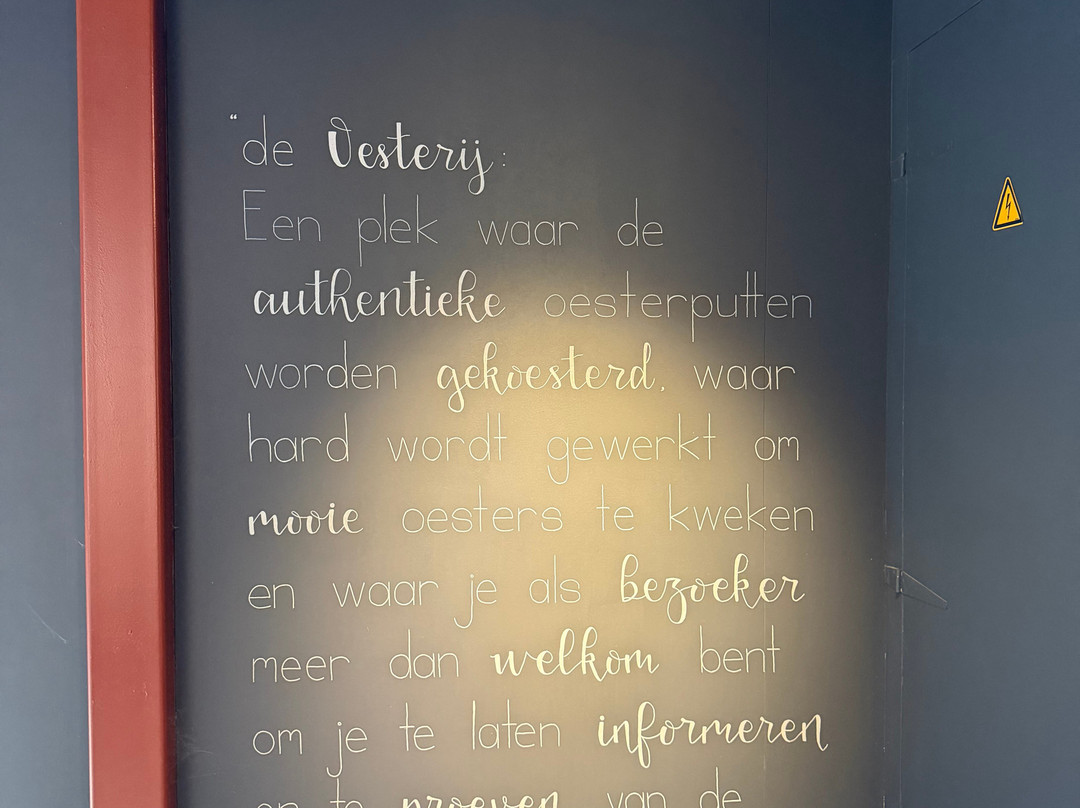 “de Oesterij:
Een plek waar de
authentieke oesterputten
worden gekoesterd, waar
hard wordt gewerkt om
mooie oesters te kweken
en waar je als bezoeker
meer dan welkom bent
om je te laten informeren
en te proeven van de